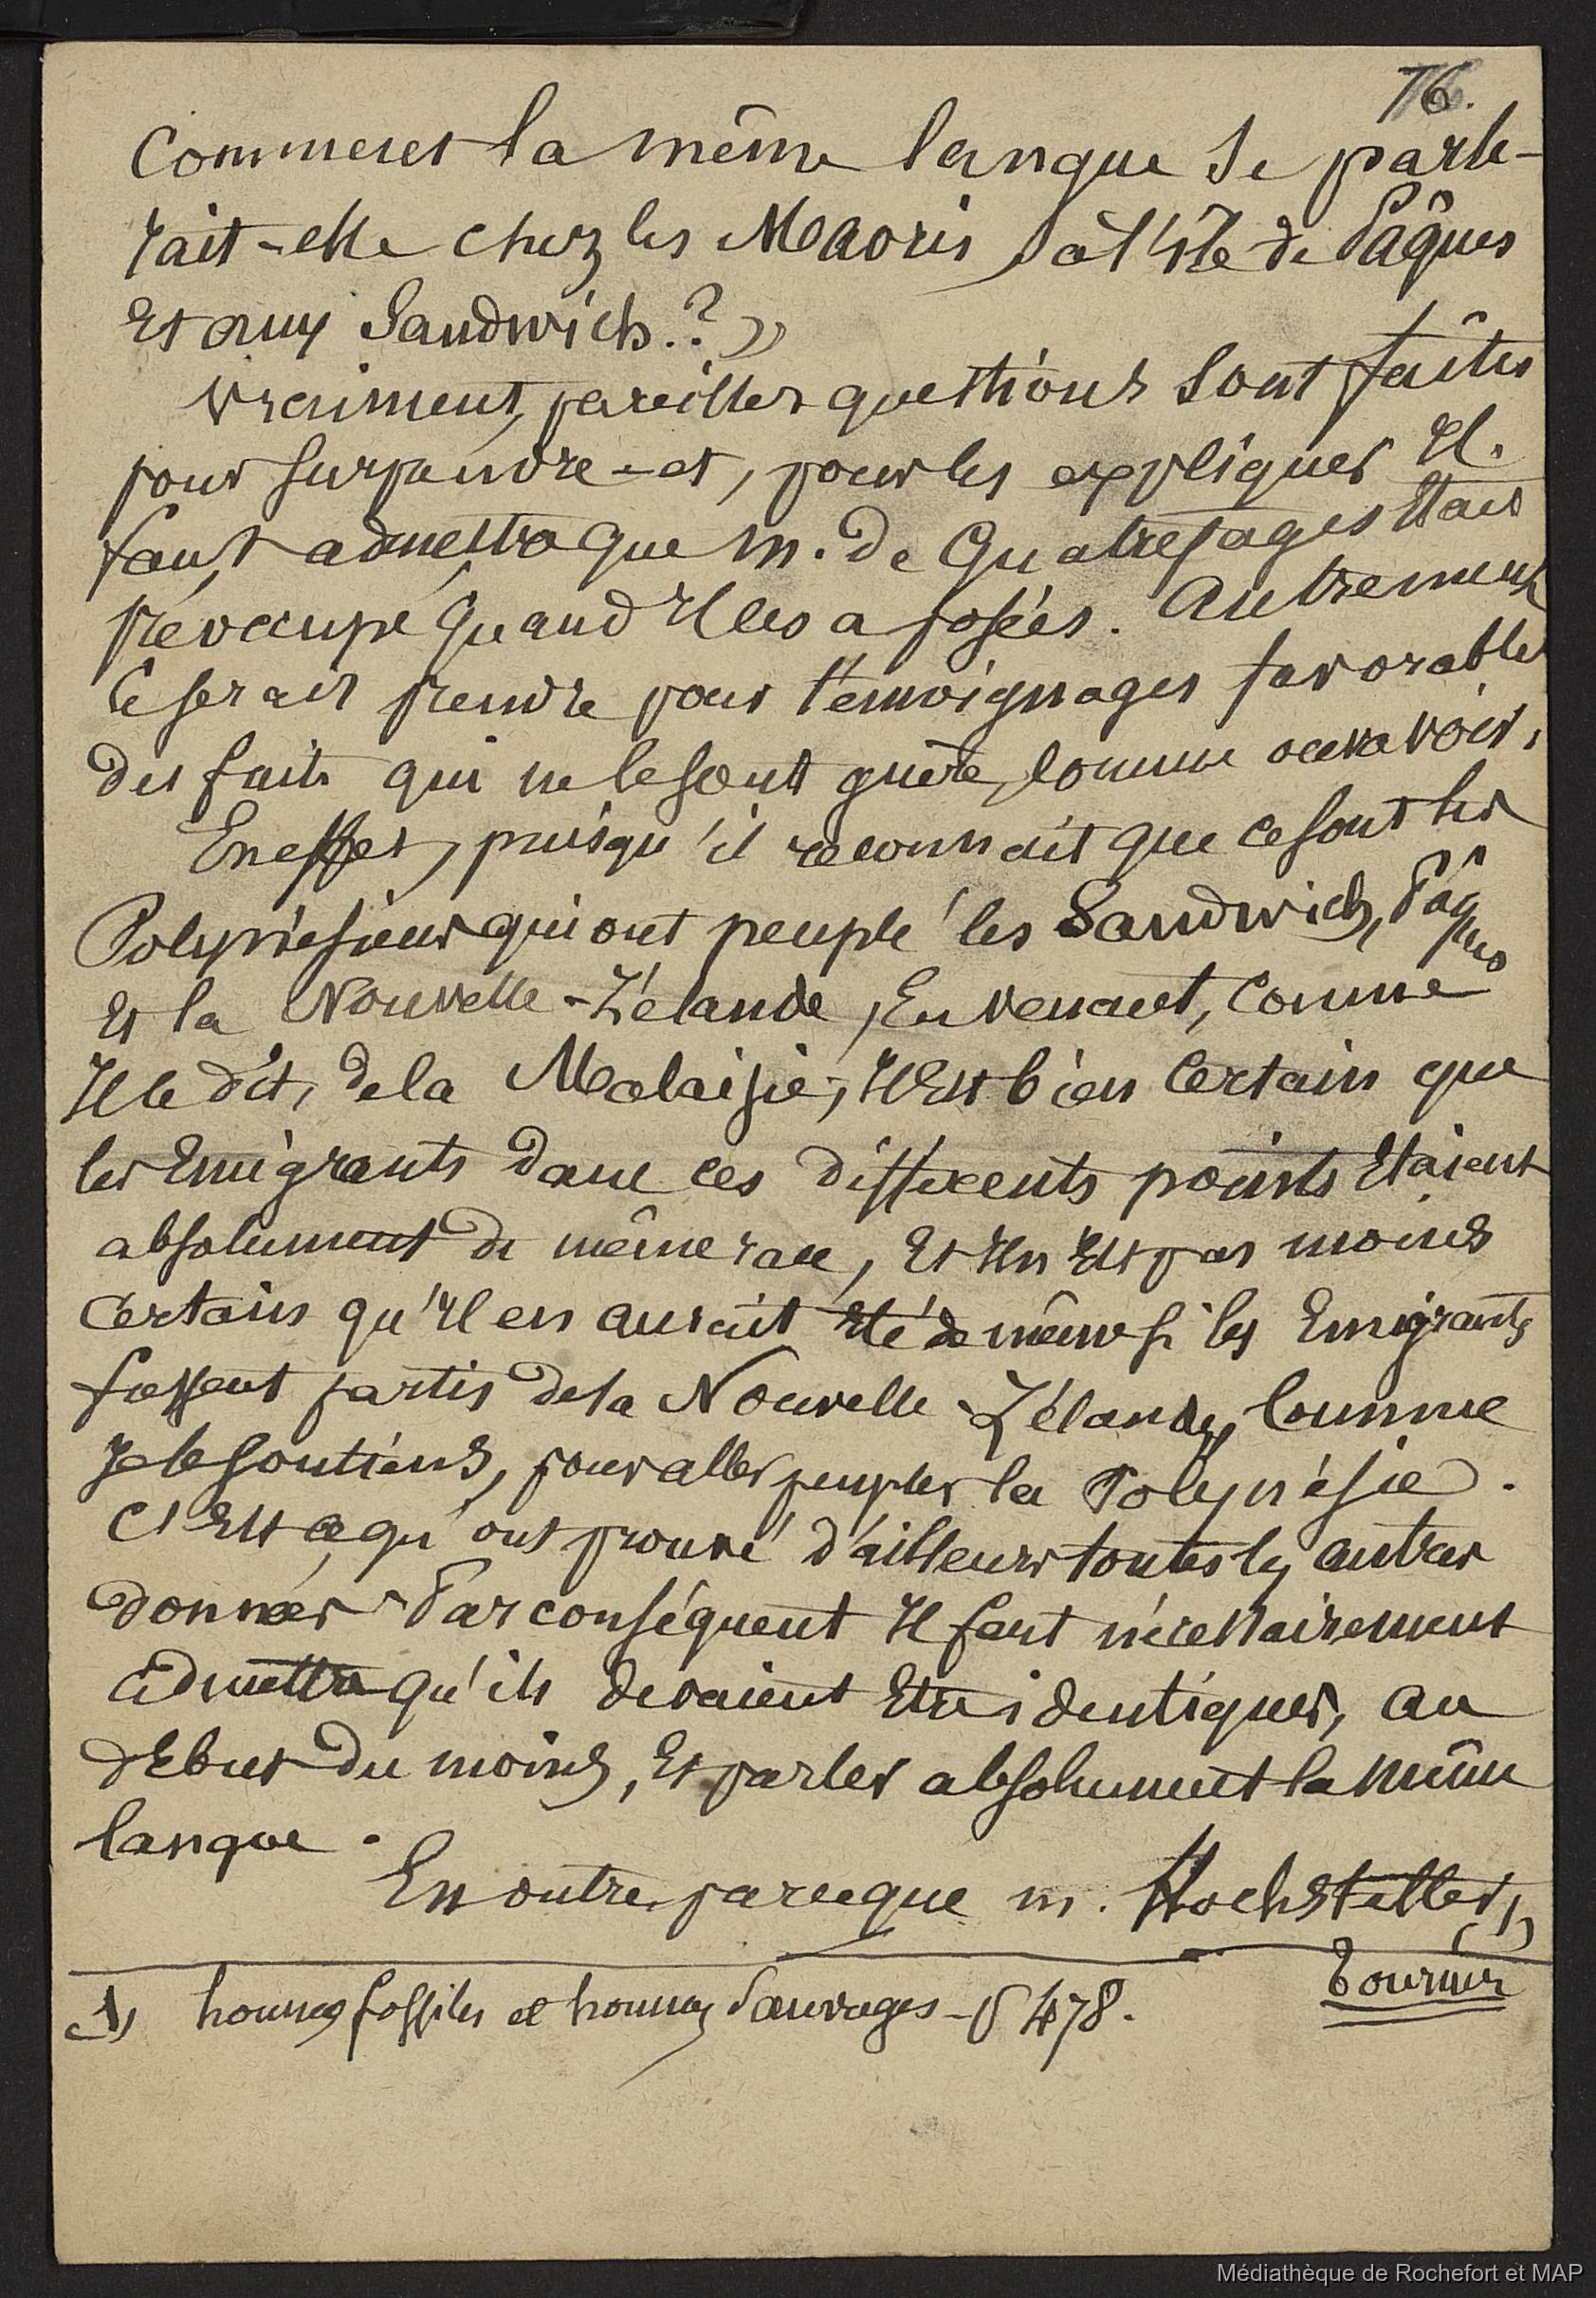 76.
Comment la même langue se parle-
rait-elle chez les Maoris, à l'île de Pâques
Et aux Sandwich.? »
Vraiment, pareilles questions sont faites
pour surprendre - et, pour les expliquer Il.
faut admettre que M. de Quatrefages Etait
préoccupé quand Il les a posées. Autrement
Ce serait prendre pour témoignages favorables
des faits qui ne le sont guère, comme on va voir.
En effet, puisqu'il reconnait que ce sont les
Polynésiens qui ont peuplé les Sandwich, Pâques
Et la Nouvelle-Zélande, En venant, Comme
Il le dit, de la Malaisie, Il Est bien Certain que
les Emigrants dans ces différents points Etaient
absolument de même race, Et Il n'Est pas moins
Certain qu'Il en aurait Eté de même si les Emigrants
fussent partis de la Nouvelle-Zélande, Comme
Je le soutiens, pour aller peupler la Polynésie.
C'Est ce qu'ont prouvé d'ailleurs toutes les autres
données - Par conséquent Il faut nécessairement
admettre qu'ils devaient Etre identiques, au
dEbut du moins, Et parler absolument la même
langue.
En outre, parceque M. Hochstetter,
(1)
Tourner
(1) hommes fossiles et hommes Sauvages - p 478.
Médiathèque de Rochefort et MAP